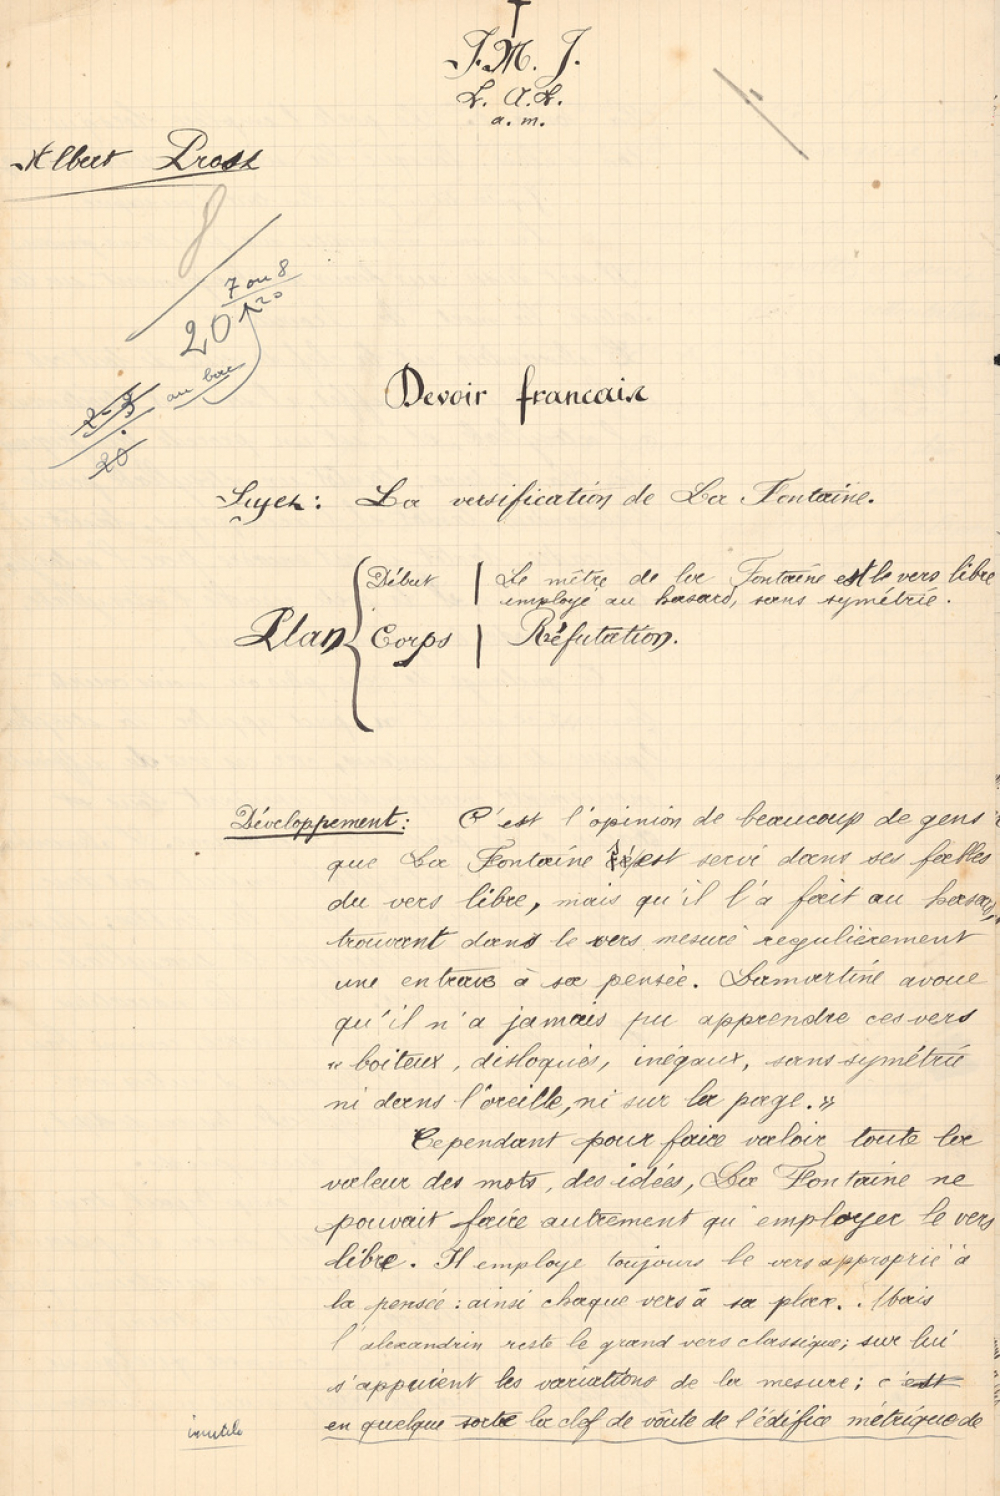 J. M. J.
L. A. L.
a. m.
Albert
8
7 ou 8
20
20
au bac
20
Devoir francais
Sujet : La versification de La Fontaine.
Plan
Début | Le mètre de la Fontaine est le vers libre
employé au hasard, sans symétrie.
Corps | Réfutation.
Développement : C'est l'opinion de beaucoup de gens
que La Fontaine s'est servi dans ses fables
du vers libre, mais qu'il l'a fait au hasard,
trouvant dans le vers mesuré regulièrement
une entrave à sa pensée. Lamartine avoue
qu'il n'a jamais pu apprendre ces vers
« boiteux, disloqués, inégaux, sans symétrie
ni dans l'oreille, ni sur la page. »
Cependant pour faire valoir toute la
valeur des mots, des idées, La Fontaine ne
pouvait faire autrement qu'employer le vers
libre. Il employe toujours le vers approprié à
la pensée : ainsi chaque vers à sa place. . Mais
l'alexandrin reste le grand vers classique; sur lui
s'appuient les variations de la mesure; c'est
en quelque sorte la clef de voûte de l'édifice métrique de
inutile